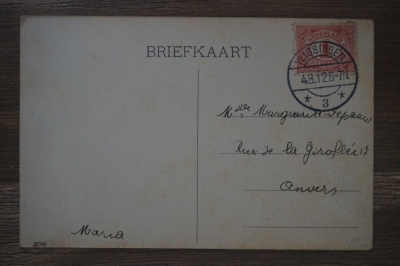 BRIEFKAART
VLISSINGEN
4.8.12.6-7
3
Mlle Marguerite Depauw
Rue de la Giroflée 17
Anvers
Maria